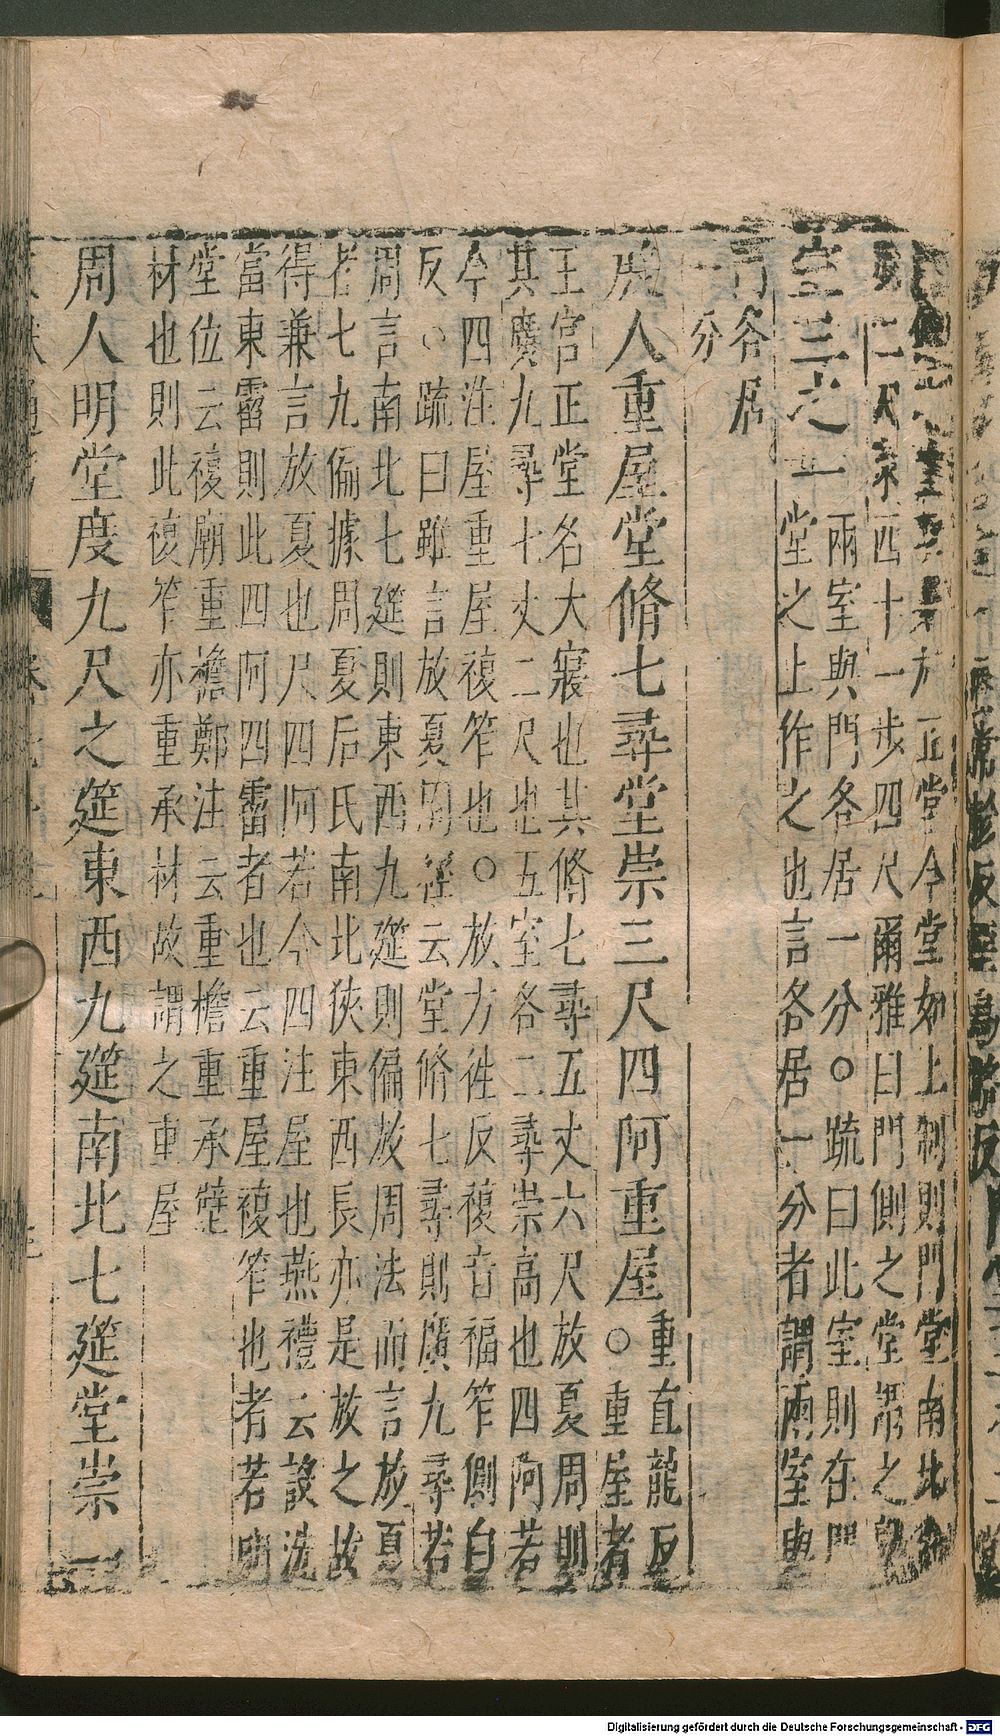 正堂今堂如上制則門堂南北
二尺 四十一步四尺爾雅曰門側之堂謂之
室三之一 兩室與門各居一分○疏曰此室則在門
堂之上作之也言各居一分者謂兩室與
門各居
一分
殷人重屋堂脩七尋堂崇三尺四阿重屋○重直龍反
重屋者
王宮正堂名大寢也其脩七尋五丈六尺放夏周則
其廣九尋七丈二尺也五室各二尋崇高也四阿若
今四注屋重屋複笮也○放方徃反複音福笮側白
反○疏曰雖言放夏周經云堂脩七尋則廣九尋若
周言南北七筵則東西九筵則偏放周法而言放夏
者七九偏據周夏后氏南北狹東西長亦是放之故
得兼言放夏也尺四阿若今四注屋也燕禮云設洗
當東霤則此四阿四霤者也云重屋複笮也者若明
堂位云複廟重檐鄭注云重檐重承壁
材也則此複笮亦重承材故謂之重屋
周人明堂度九尺之筵東西九筵南北七筵堂崇一
Digitalisierung gefördert durch die Deutsche Forschungsgemeinschaft - DFG